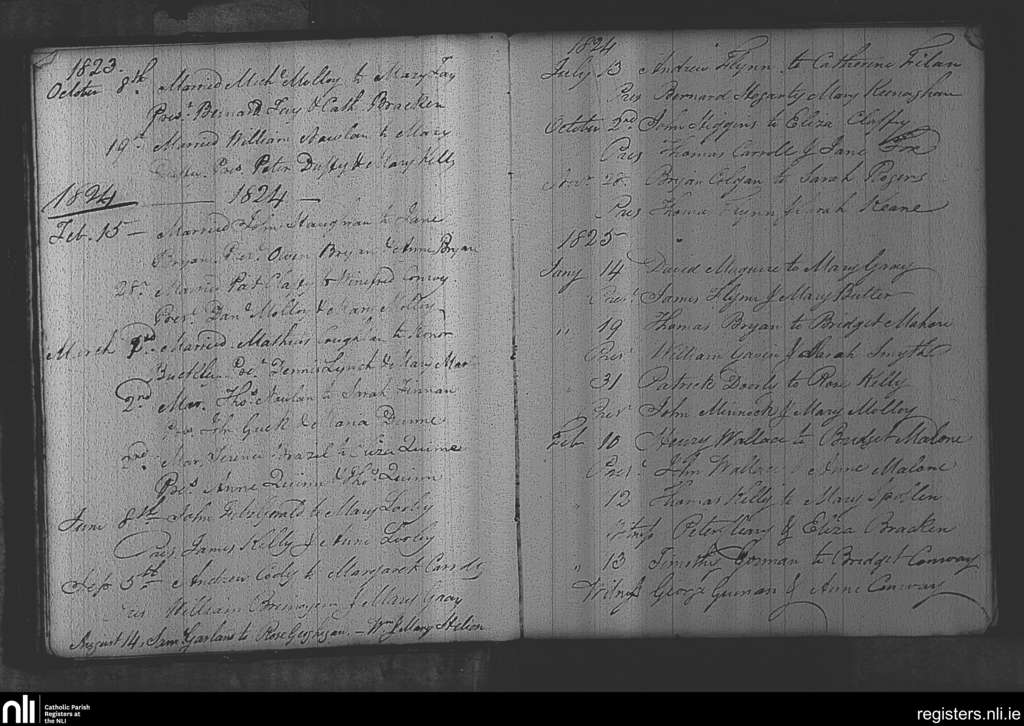 1823.
October 8th Married Michl Molloy to Mary Fay
Prest Bernard Fay & Cath. Bracken
19th Married William Nowlan to Mary
Duffy. Pres Peter Duffy & Mary Kelly
1824 1824
Feb. 15 Married John to Jane
Bryan Pres. Owen Bryan & Anne Bryan
28th Married Pat Claffy & Winefred Conroy.
Prest Danl Molloy & Mary Molloy
March Married Mathias to Honor
Dennis Lynch & Mary
2nd Mar. Thos Nowlan to Sarah
Pres John & Maria Dunne
2nd Mar. Terence Brazel to Eliza Quinn
Pres Anne Quinn & Thos Quinn
June 8th John Fitzgerald to Mary Looby
Pres James Kelly & Anne Looby
Sep. 5th Andrew Cody to Margaret
Pres William & Mary Gray
August 14, Saml Garland to Rose Geoghegan. Wm & Mary
1824
July 13 Andrew Flynn to Catherine Filan
Pres Bernard Hogarty Mary Keenaghan
October 2nd John Higgins to Eliza Claffy
Pres Thomas Carroll & Jane Fox
Novr 28 Bryan Colgan to Sarah Rogers
Pres Thomas & Sarah Keane
1825
Jany 14 David Maguire to Mary Gray
Prest James Flynn & Mary Butler
" 19 Thomas Bryan to Bridget Mahon
Pres William Gavin & Sarah Smyth
" 31 Patrick Doorly to Rose Kelly
Pres John Minnock & Mary Molloy
Feb 10 Henry Wallace to Bridget Malone
Pres John Wallace & Anne Malone
" 12 Thomas Kelly to Mary Spollen
Peter & Eliza Bracken
" 13 Timothy Gorman to Bridget Conway
Witness George & Anne Conway
nli
Catholic Parish
Registers at
the NLI
registers.nli.ie